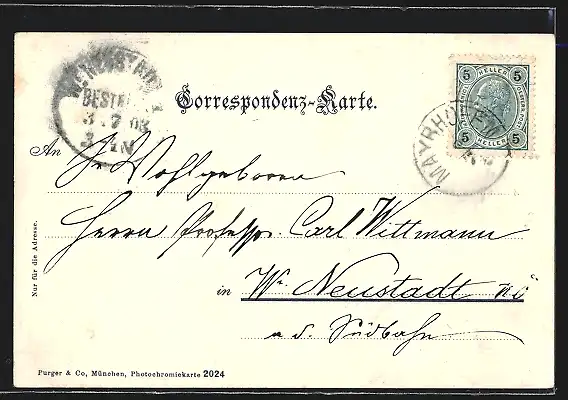 Correspondenz-Karte.
BESTELLT
3 7 03
5 HELLER 5
5 HELLER 5
MAYRHOFEN
An Sr. Wohlgeboren
Herrn Professor Carl Wittmann
in Wr. Neustadt
a. d. Südbahn
Nur für die Adresse.
Purger & Co, München, Photochromiekarte 2024